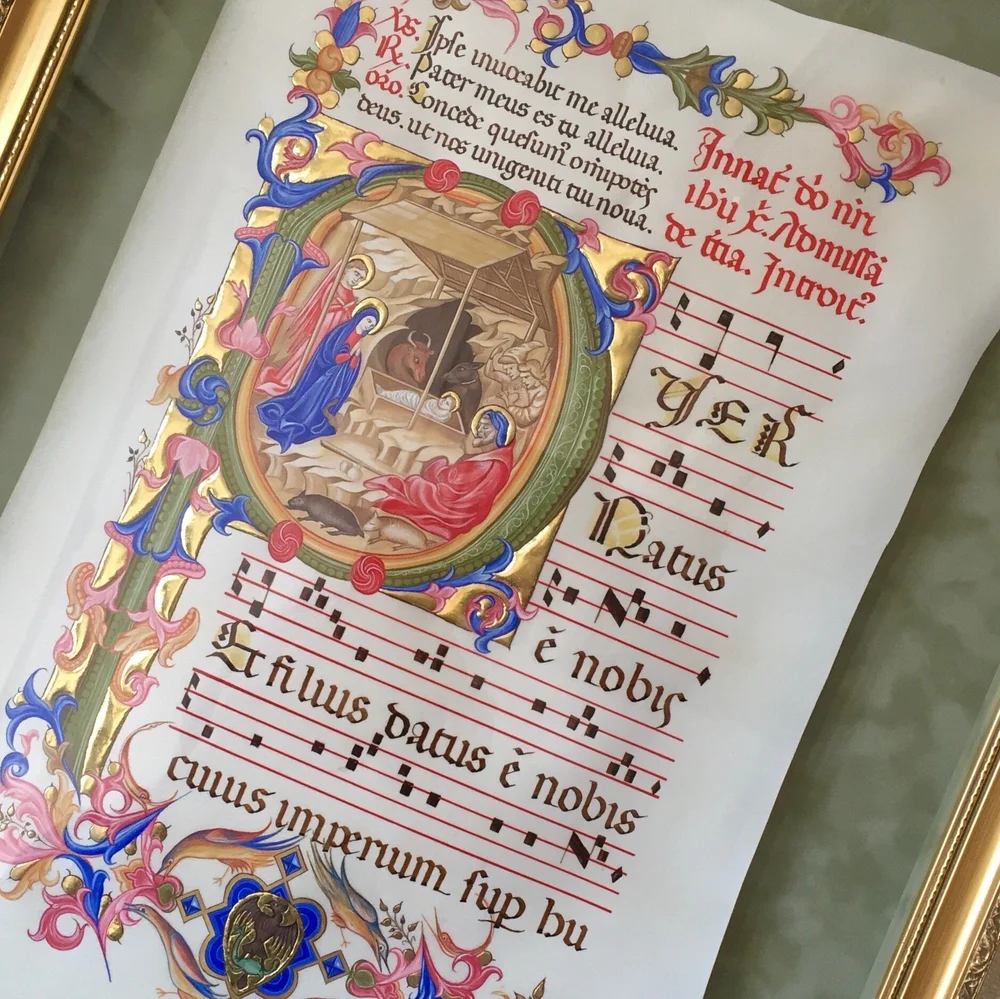 xs. Ipse inuocabit me alleluia.
R. Pater meus es tu alleluia.
oro. Concede quesum̃ om̃ipotẽs
deus. ut nos unigeniti tui noua.
Innat̃ dõ nri
ihũ x̃. Ad missã
de tĩa. Introit᷒.
YER
Natus
ẽ nobis
Et filius datus ẽ nobis
cuius imperium sup hu